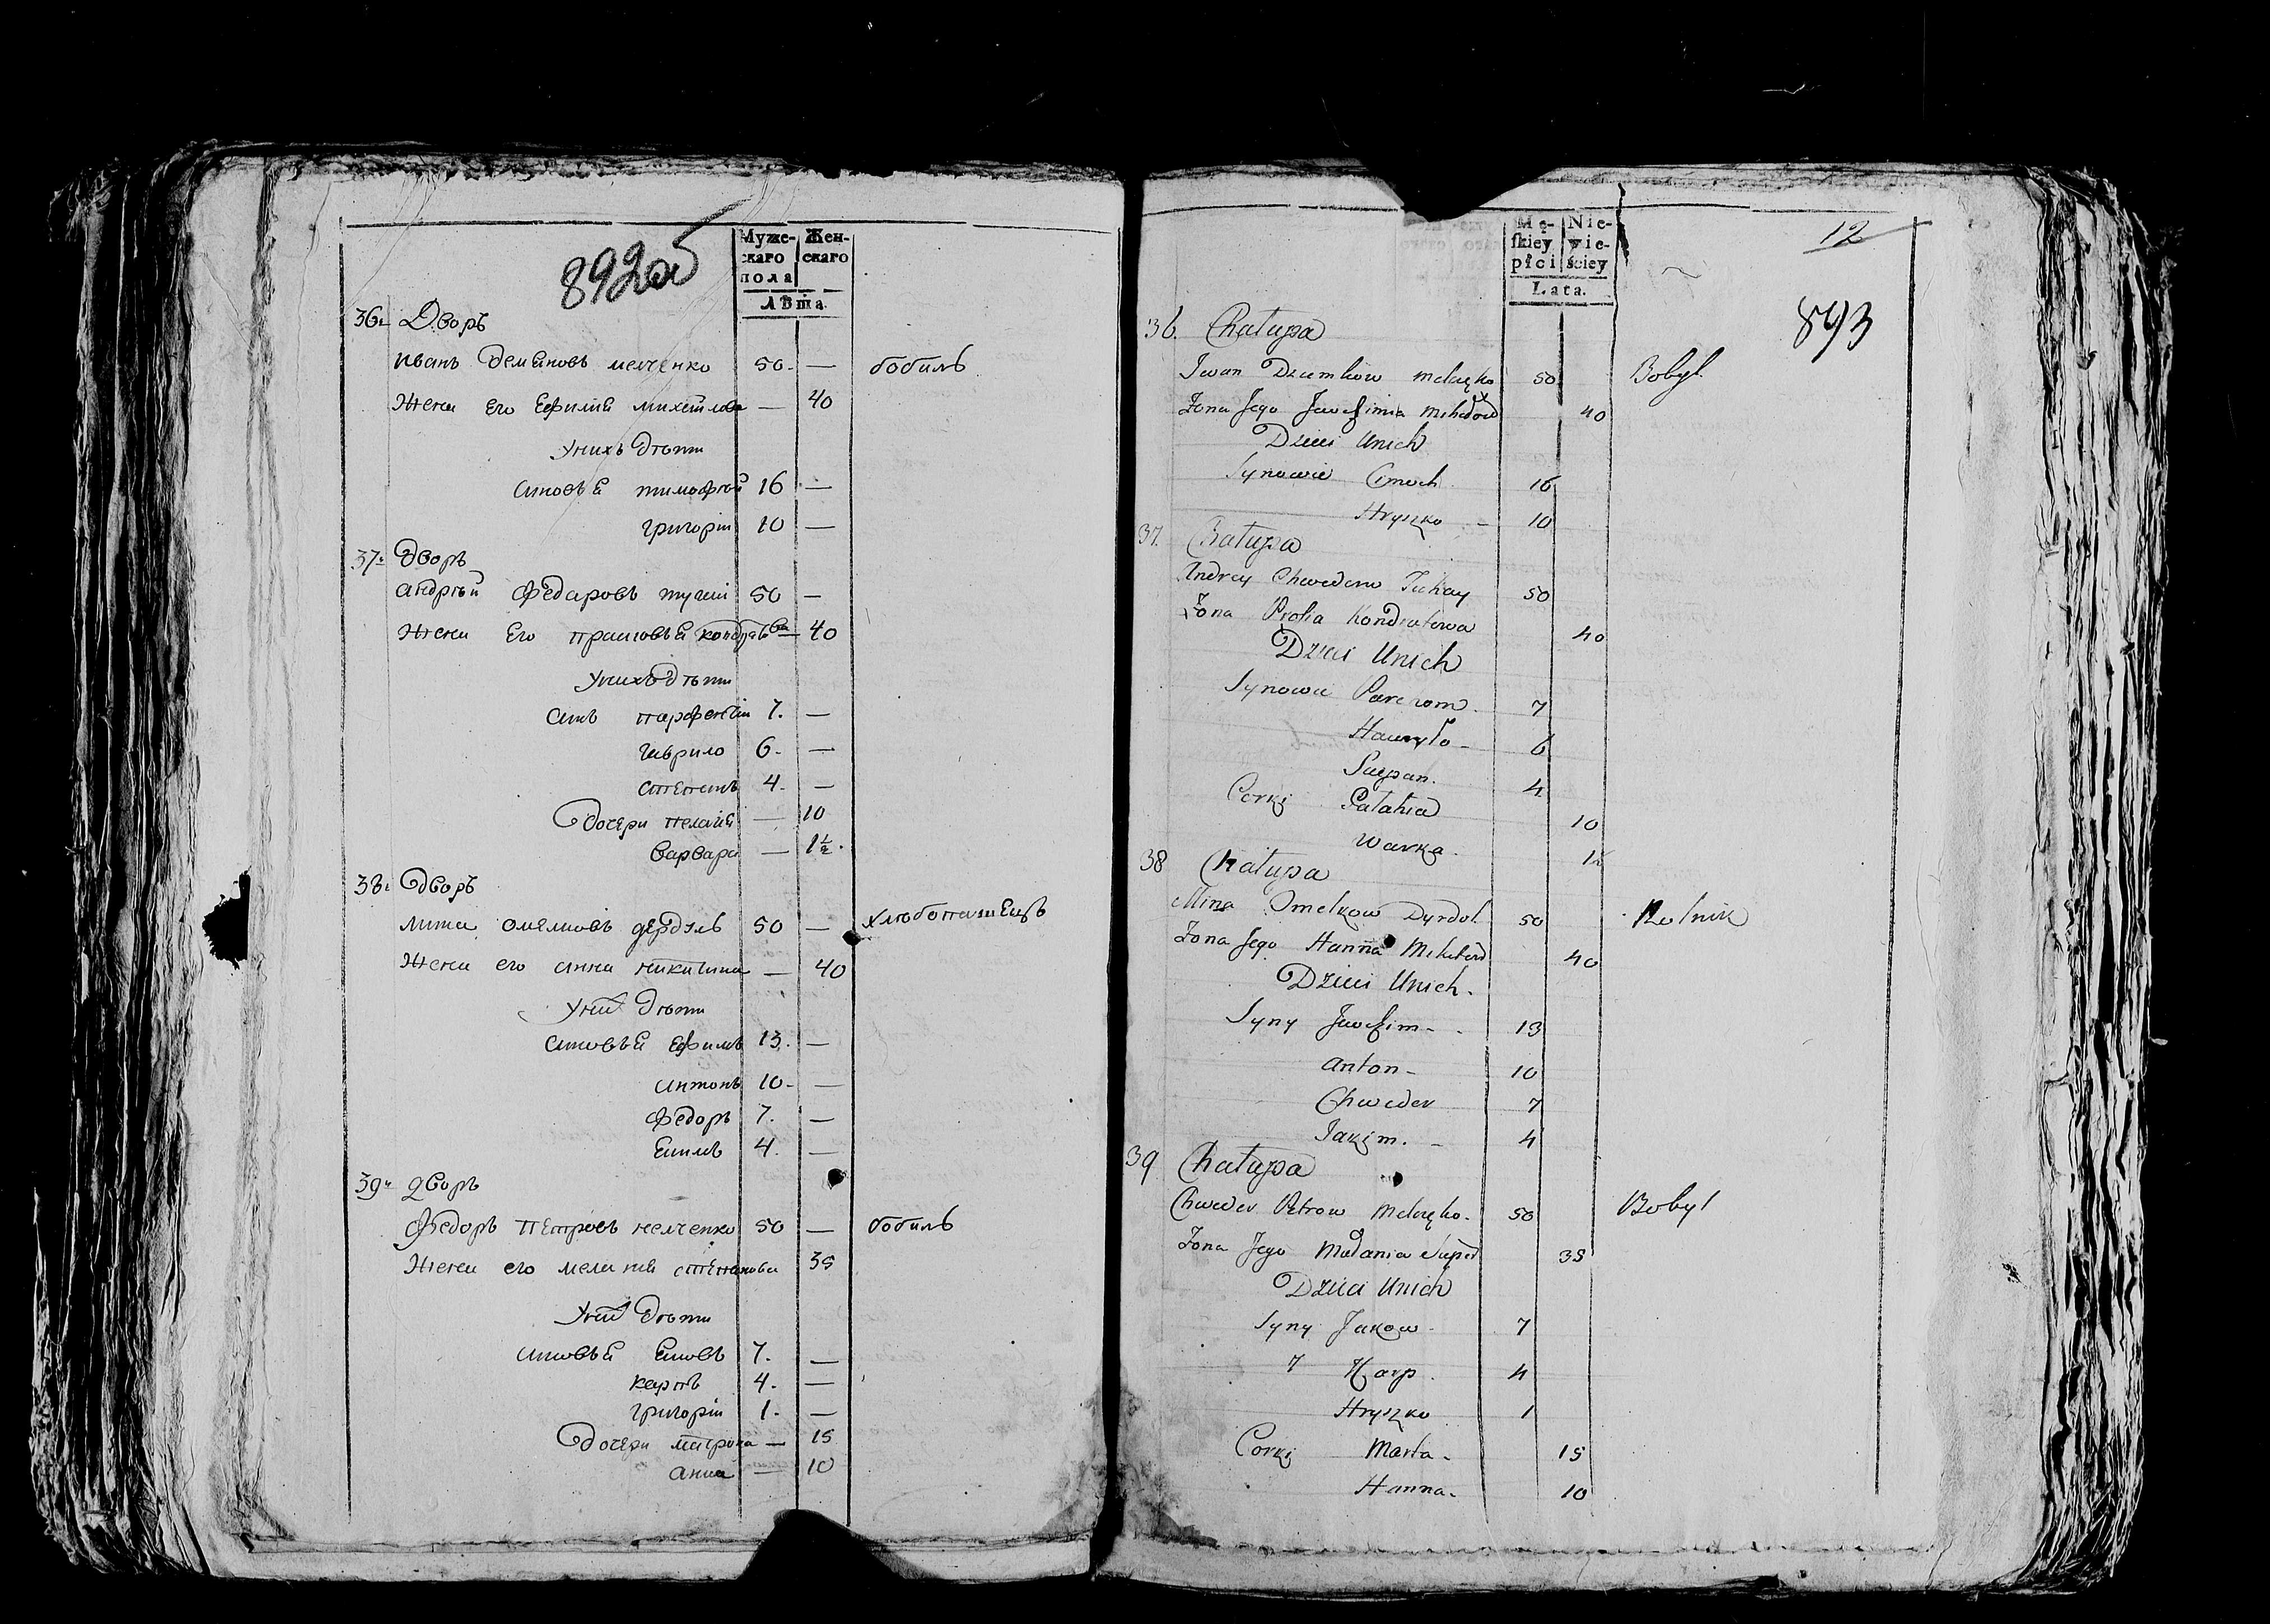 892об
Муже- Жен-
скаго скаго
пола
Лѣта
36 Дворъ
иванъ Демяновъ мелченко 50 — бобиль
Жена Его Ефимия михайлова — 40
Унихъ Дѣти
синовья тимофей 16 —
григорий 10 —
37 Дворъ
андрѣй Федаровъ тукай 50 —
Жена Его прасковья кондратова — 40
Унихъ дѣти
синъ парфентий 7. —
гаврило 6. —
степанъ 4. —
Дочери пелагия — 10
варвара — 1½
38 Дворъ
мина омелковъ дердуль 50 — хлѣбопашецъ
Жена его анна никитина — 40
Унихъ Дѣти
синовья Ефимъ 13. —
антонъ 10 —
Федоръ 7. —
Екимъ 4. —
39 Дворъ
Федоръ Петровъ мелченко 50 — бобиль
Жена его мелания степанова 35
Унихъ Дѣти
синовья Яковъ 7. —
карпъ 4. —
григорий 1. —
Дочери — 15
анна — 10
Mę- Nie-
skiey wie-
płci ściey
Lata.
12
893
36. Chałupa
Iwan Dziemkow Melaczko 50 Bobyl
Żona Jego Jewfimia 40
Dzieci Unich
Synowie Cimoch 16
Hryszko — 10
37. Chałupa
Andrey Chwedorow Tukay 50
Żona Prosia Kondratowa 40
Dzieci Unich
Synowie Parchom 7
Hawryło — 6
Sciepan. 4
Corki Palahia 10
Warka. 1½
38 Chałupa
Mina Omelkow Dyrdol 50 Rolnik
Żona Jego Hanna Mikitowa 40
Dzieci Unich.
Syny Jewfim — 13
Anton — 10
Chweder 7
Jakim. — 4
39 Chałupa
Chweder Petrow Melaczko. 50 Bobyl
Żona Jego Małania 35
Dzieci Unich
Syny Jakow 7
Karp. 4
Hryszko 1
Corki Marta. 15
Hanna. 10